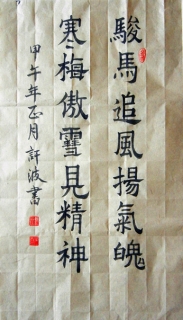 駿馬追風揚氣魄
寒梅傲雪見精神
甲午年正月許波書